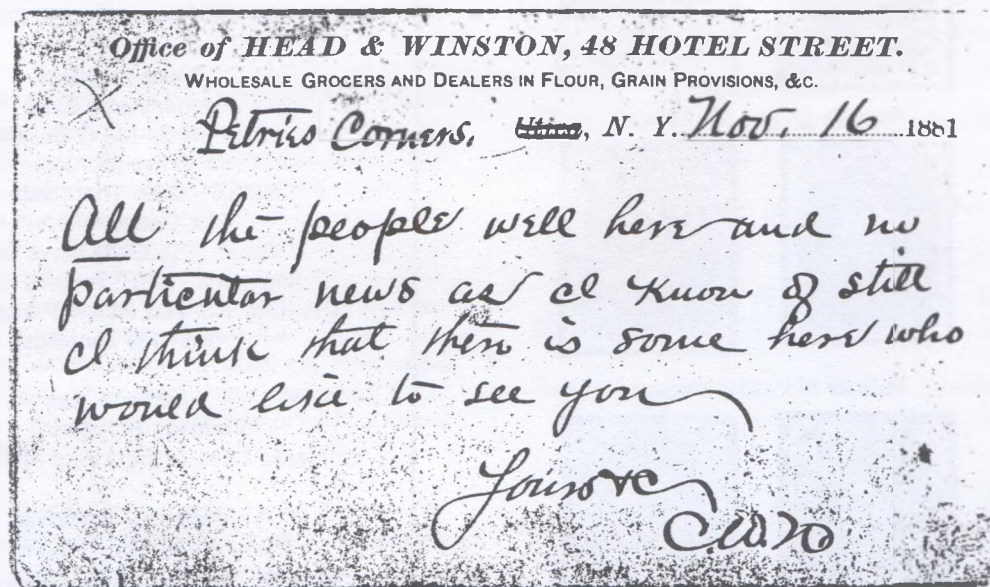 Office of HEAD & WINSTON, 48 HOTEL STREET.
WHOLESALE GROCERS AND DEALERS IN FLOUR, GRAIN PROVISIONS, &C.
Petries Corners. Utica, N. Y. Nov. 16 1881
All the people well here and no
particular news as I know of still
I think that there is some here who
would like to see you
Yours &c